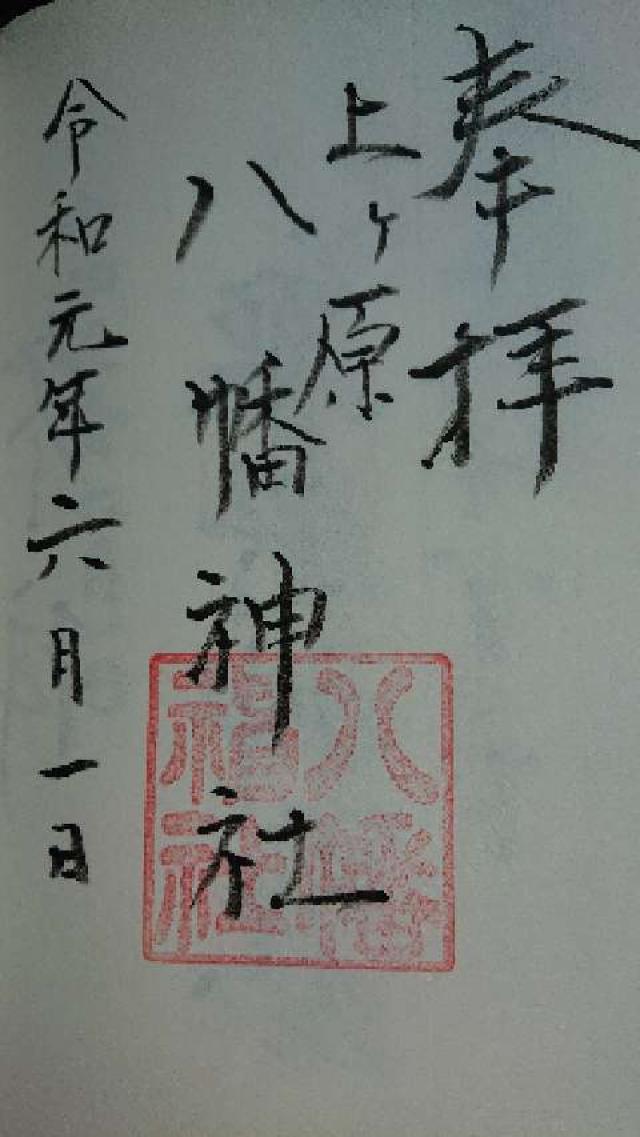 奉拝
上ヶ原
八幡神社
令和元年六月一日
八幡
神社